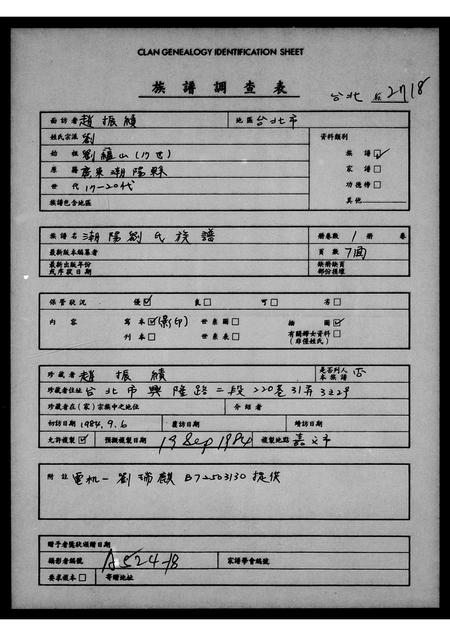 CLAN GENEALOGY IDENTIFICATION SHEET
族譜調查表
台北 2718
面訪者 趙振績 地區 台北市
姓氏宗派 劉 資料類別
始祖 劉龍山(17世) 族譜☑
原籍 廣東潮陽縣 家譜□
世代 17-20代 功德榜□
族譜包含地區 其他
族譜名 潮陽劉氏族譜 冊卷數 1 冊 卷
最新版本編纂者 頁數 7面
最新出版年份或序跋日期 缺冊缺頁部份損壞
保管狀況 優☑ 良□ 可□ 劣□
內容 寫本☑(影印) 世系圖□ 插圖☑
刊本□ 世系表□ 有關婦女資料□(非僅姓氏)
珍藏者 趙振績 是否列入本族譜 否
珍藏者住址 台北市興隆路二段220巷31弄3之29
珍藏者在(家)宗族中之地位 介紹者
初訪日期 1984.9.6 覆訪日期 續訪日期
允許複製☑ 預擬複製日期 19 Sep 1984 複製地點 嘉文市
附註 電机一劉瑞麒 B72503130 提供
贈予者獎狀頒贈日期
攝影者編號 A524-18 家譜學會編號
要求複本□ 寄贈地址